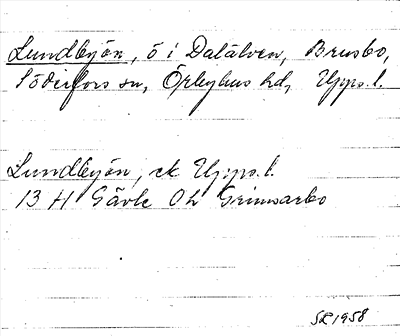 Lundbyön, ö i Dalälven, Brusbo,
Söderfors sn, Örbyhus hd, Upps. l.
Lundbyön, ek Upps. l.
13 H Gävle Oh Grinnarbo
SR 1958